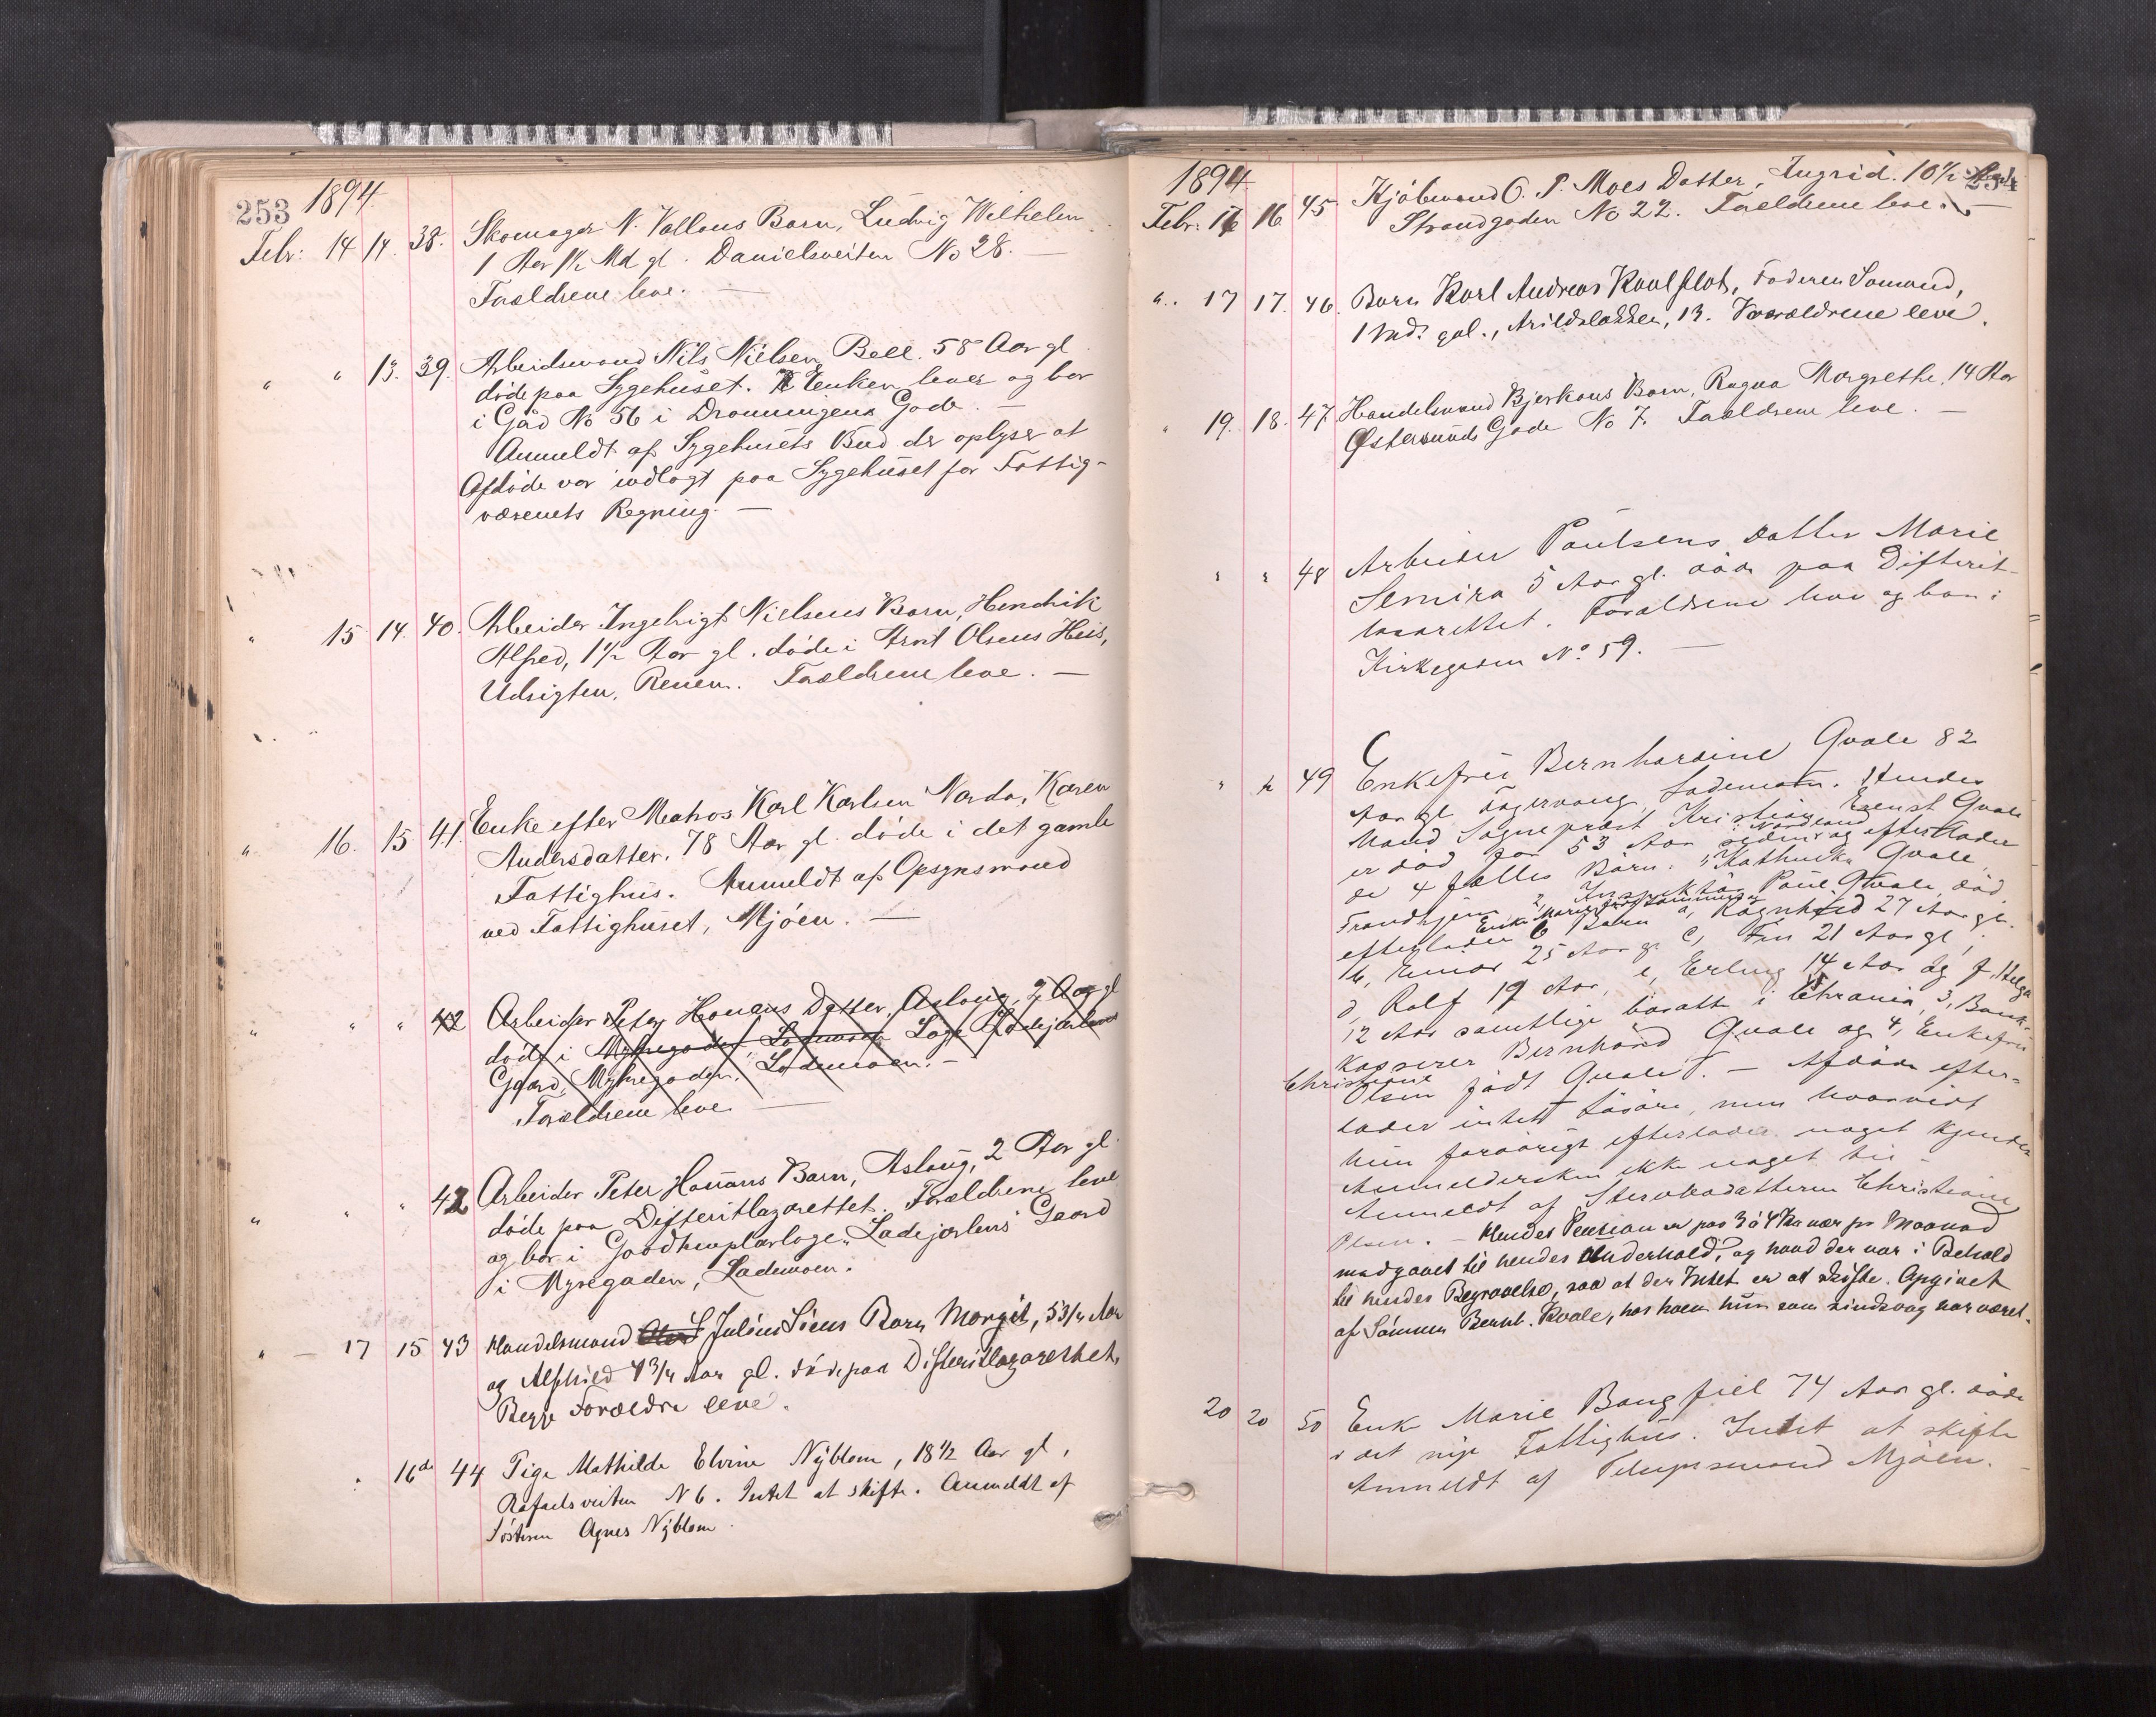 253 1894
Febr: 14 14. 38. Skomager N. Vallans Barn, Ludvig Wilhelm
1 Aar 1½ Md gl. Danielsveiten No 28. —
Forældrene leve. —
" " 13. 39. Arbeidsmand Nils Nielsen Bell. 58 Aar gl
døde paa Sygehuset. Enken lever og bor
i Gård No 56 i Dronningens Gade. —
Anmeldt af Sygehusets Bud der oplyser at
Afdøde var indlagt paa Sygehuset for Fattig-
væsenets Regning. —
" 15 14. 40. Arbeider Ingebrigt Nielsens Barn, Hendrik
Alfred, 1½ Aar gl. døde i Arnt Olsens Hus,
Udsigten, Renen. Forældrene leve. —
" 16. 15 41. Enke efter Matros Karl Karlsen Narda, Karen
Andersdatter. 78 Aar gl. døde i det gamle
Fattighus. Anmeldt af Opsynsmand
ved Fattighuset, Mjöen. —
" " " 42 Arbeider Peter Hanans Datter, Aslaug, 2 Aar gl
døde i Myhregaden Lademoen Loge Ladejarlens
Gaard, Myhregaden, Lademoen. —
Forældrene leve. —
" " " 42 Arbeider Peter Hanans Barn, Aslaug, 2 Aar gl
døde paa Difteritlazarettet. Forældrene leve
og bor i Goodtemplarloge "Ladejarlens" Gaard
i Myregaden, Lademoen.
" — 17 15 43 Handelsmand Julius Siens Barn Margit, 5 3/4 Aar
og Alfhild 4 3/4 Aar gl. døde paa Difteritlazarettet,
Begge Forældre leve.
16de 44 Pige Mathilde Elvine Nyblom, 18½ Aar gl,
Rafaelsveiten N 6. Intet at skifte. Anmeldt af
Søsteren Agnes Nyblom.
1894 254
Febr: 16 16 45 Kjøbmand O. P. Moes Datter, Ingrid. 10½
Strandgaden No 22. Forældrene leve. —
" 17 17. 46. Barn Karl Andreas Kaalflot, Faderen Sømand,
1 Md. gal., Arildsløkken, 13. Forældrene leve.
" 19. 18. 47. Handelsmand Bjerkans Barn, Ragna Margrethe, 14 Aar
Østersunds Gade No 7. Forældrene leve. —
" " 48 Arbeider Paulsens datter Marie
Elmira 5 Aar gl. død paa Difterit-
lazarettet. Forældrene leve og bor i
Kirkegaden No 59. —
" " 49 Enkefru Bernhardine Qvale 82
Aar gl Fagervang, Lademoen. Hendes
Mand Sogneprest Kristian Ernst Qvale
er død for 53 Aar siden i Nordland og efterlader
de 4 fælles Børn. 1, Kathinka Qvale,
Trondhjem 2, Inspektør Paul Qvale død
efterlader Enke Marie og 6 Børn a, Ragnhild 27 Aar gl.
b, Einar 25 Aar gl c, Finn 21 Aar gl,
d, Rolf 19 Aar, e, Erling 14 Aar og f, Helga
12 Aar samtlige bosatte i Chrania, 3, Bank-
kasserer Bernhard Qvale og 4, Enkefru
Christiane Olsen født Qvale. — Afdøde efter-
lader intet Løsøre, men hvorvidt
hun forøvrigt efterlader noget kjender
Anmeldersken ikke noget til
Anmeldt af Sterbodatteren Christiane
Olsen. — Hendes Pension er paa 3 à 4 Kroner pr Maaned
medgaaet til hendes Underhold, og hvad der var i Behold
til hendes Begravelse, saa at der Intet er at skifte. Opgivet
af Sønnen Bernh. Kvale, hos hvem hun som sindssvag har været.
20 20 50 Enke Marie Bangfiel 74 Aar gl. døde
i det nye Fattighus. Intet at skifte
Anmeldt af Tilsynsmand Mjøen. —